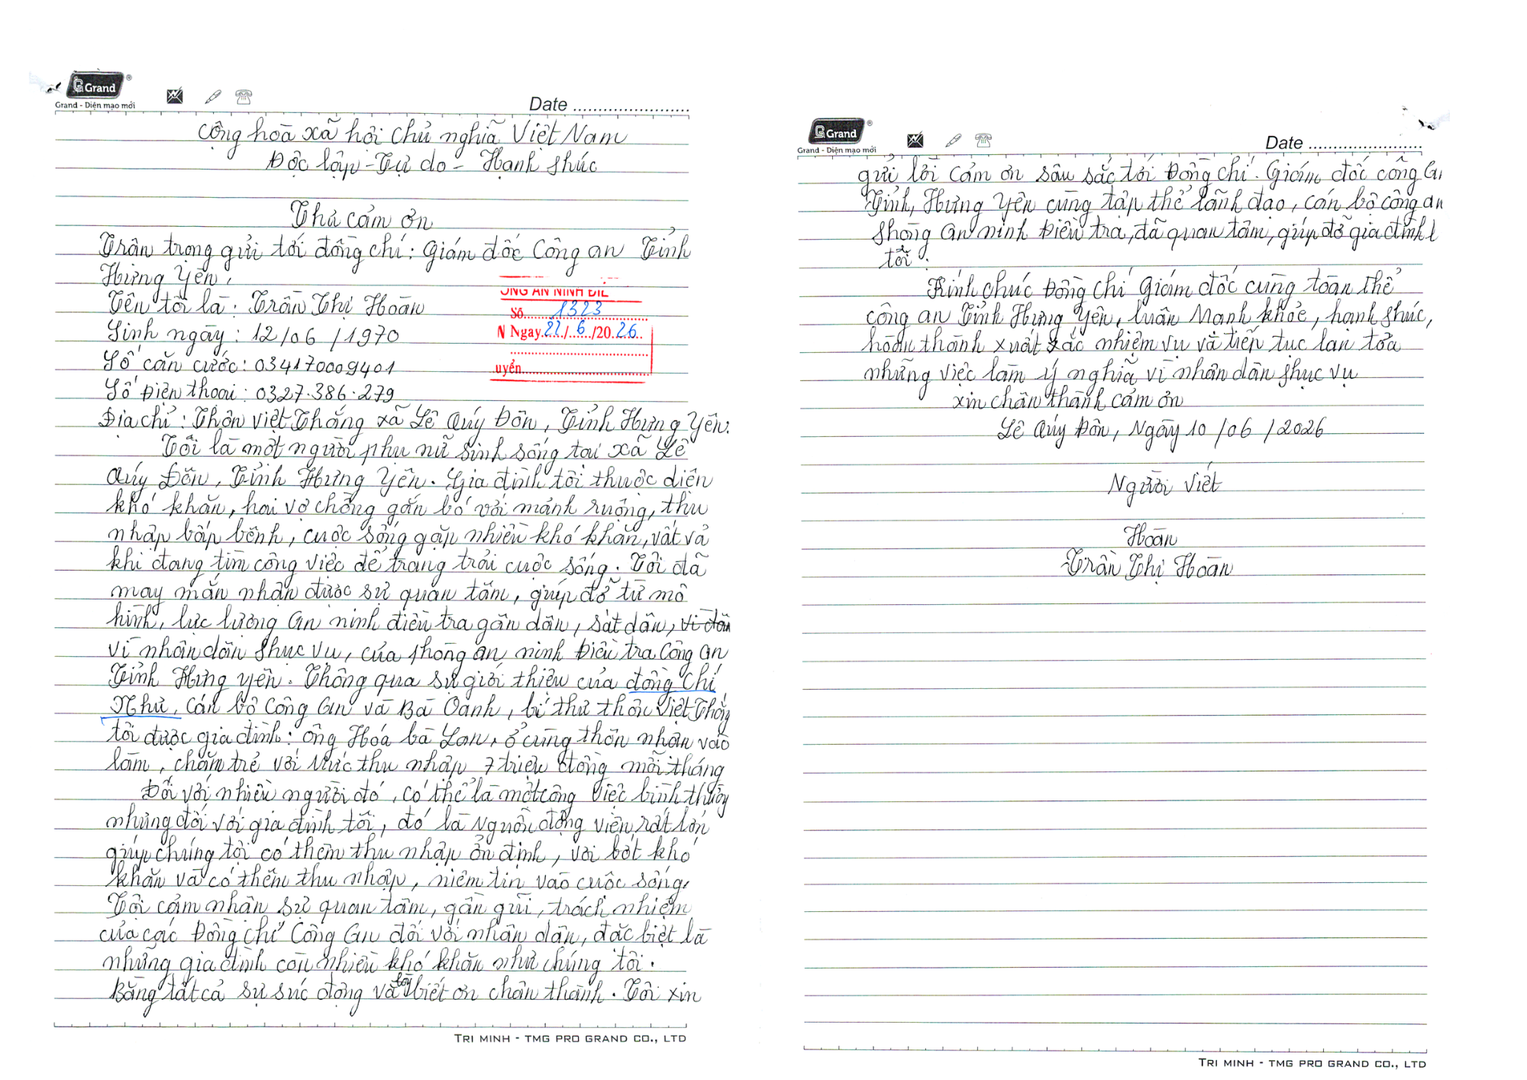 Grand
Grand - Diện mạo mới
Date
Cộng hoà xã hội chủ nghĩa Việt Nam
Độc lập - Tự do - Hạnh phúc
Thư cảm ơn
Trân trọng gửi tới đồng chí: Giám đốc Công an Tỉnh
Hưng Yên.
Tên tôi là: Trần Thị Hoàn
Sinh ngày: 12/06/1970
Số căn cước: 034170009401
Số Điện thoại: 0327.386.279
Địa chỉ: Thôn Việt Thắng xã Lê Quý Đôn, Tỉnh Hưng Yên.
Số 1323
N Ngày 22/6/2026
uyển
Tôi là một người phụ nữ sinh sống tại xã Lê
Quý Đôn, Tỉnh Hưng Yên. Gia đình tôi thuộc diện
khó khăn, hai vợ chồng gắn bó với mảnh ruộng, thu
nhập bấp bênh, cuộc sống gặp nhiều khó khăn, vất vả
khi đang tìm công việc để trang trải cuộc sống. Tôi đã
may mắn nhận được sự quan tâm, giúp đỡ từ mô
hình, lực lượng An ninh điều tra gần dân, sát dân,
vì nhân dân phục vụ, của phòng an ninh Điều tra Công an
Tỉnh Hưng Yên. Thông qua sự giới thiệu của đồng chí
Như, cán bộ Công an và Bà Oanh, bí thư thôn Việt Thắng
tôi được gia đình: ông Hóa bà Lan, ở cùng thôn nhận vào
làm, chăm trẻ với mức thu nhập 7 triệu đồng mỗi tháng
Đối với nhiều người đó, có thể là một công việc bình thường
nhưng đối với gia đình tôi, đó là nguồn động viên rất lớn
giúp chúng tôi có thêm thu nhập ổn định, vơi bớt khó
khăn và có thêm thu nhập, niềm tin vào cuộc sống.
Tôi cảm nhận sự quan tâm, gần gũi, trách nhiệm
của các Đồng chí Công an đối với nhân dân, đặc biệt là
những gia đình còn nhiều khó khăn như chúng tôi.
Bằng tất cả sự xúc động và lời biết ơn chân thành. Tôi xin
TRI MINH - TMG PRO GRAND CO., LTD
Grand
Grand - Diện mạo mới
Date
gửi lời cảm ơn sâu sắc tới Đồng chí. Giám đốc công an
Tỉnh, Hưng Yên cùng tập thể lãnh đạo, cán bộ công an
phòng an ninh Điều tra, đã quan tâm, giúp đỡ gia đình
tôi.
Kính chúc Đồng chí Giám đốc cùng toàn thể
công an Tỉnh Hưng Yên, luôn Mạnh khỏe, hạnh phúc,
hoàn thành xuất xắc nhiệm vụ và tiếp tục lan tỏa
những việc làm ý nghĩa vì nhân dân phục vụ
xin chân thành cảm ơn
Lê Quý Đôn, Ngày 10/06/2026
Người viết
Hoàn
Trần Thị Hoàn
TRI MINH - TMG PRO GRAND CO., LTD